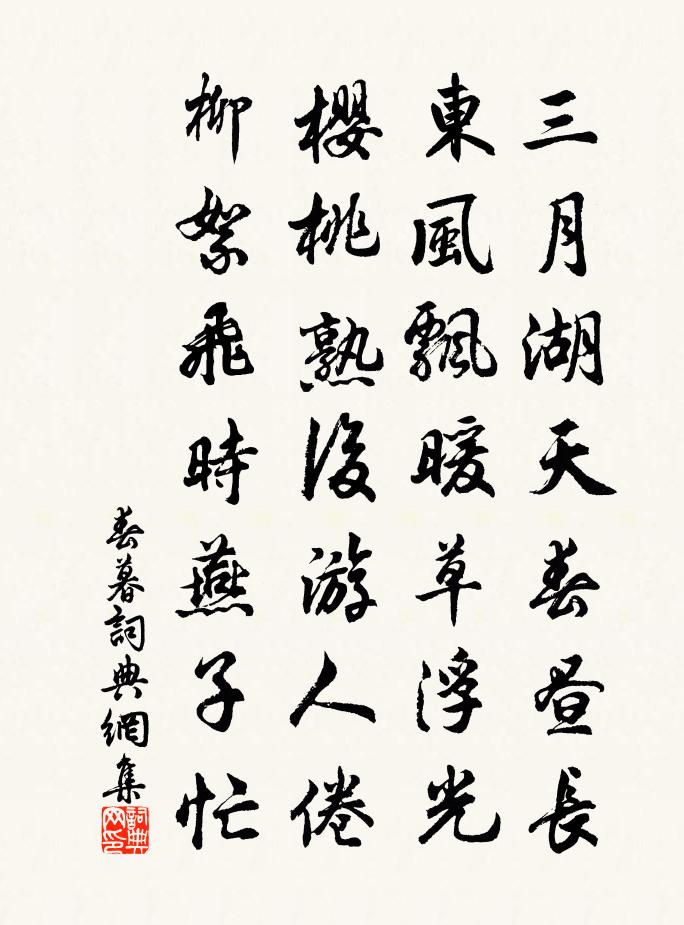 三月湖天春昼長
東風飄暖草浮光
櫻桃熟後游人倦
柳絮飛時燕子忙
春暮詞典網集
詞典網印